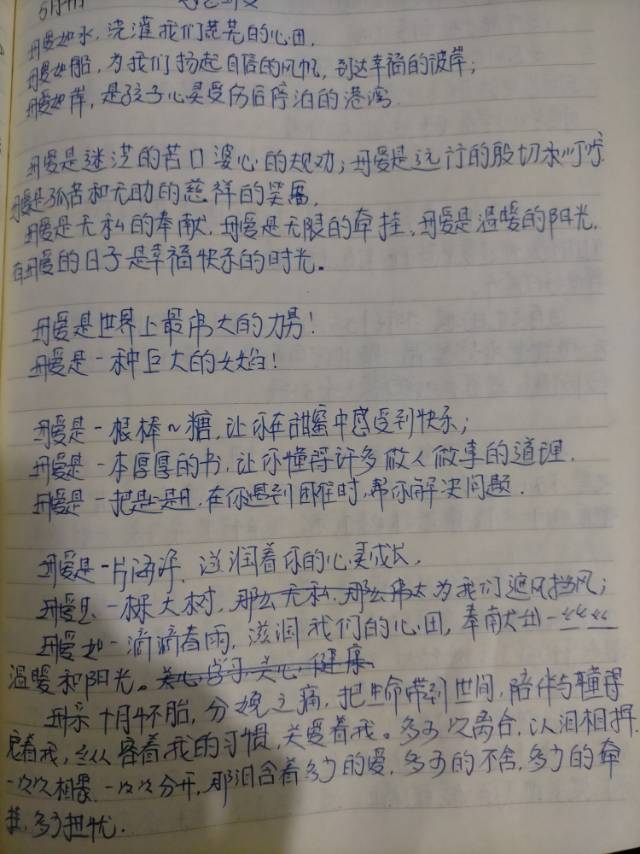 5月11日
母爱如水，浇灌我们荒芜的心田，
母爱如船，为我们扬起自信的风帆，到达幸福的彼岸；
母爱如岸，是孩子心灵受伤后停泊的港湾
母爱是迷茫的苦口婆心的规劝；母爱是远行的殷切叮咛
母爱是孤苦和无助的慈祥的笑容，
母爱是无私的奉献，母爱是无限的牵挂、母爱是温暖的阳光，
有母爱的日子是幸福快乐的时光。
母爱是世界上最伟大的力量！
母爱是一种巨大的火焰！
母爱是一根棒~糖，让你在甜蜜中感受到快乐；
母爱是一本厚厚的书，让你懂得许多做人做事的道理，
母爱是一把是，在你遇到困难时，帮你解决问题．
母爱是一片海洋、滋润着你的心灵成长，
母爱是一棵大树，那么无私，那么伟大为我们遮风挡风；
母爱如一滴滴春雨，滋润我们的心田，奉献出一丝丝
温暖和阳光。关心学习关心健康
母亲十月怀胎，分娩之痛，把生命带到世间，陪伴与
着我，纵容着我的习惯，关爱着我。多少次离合，以泪相拌
一次次相聚、一次次分开，那泪含着多少的爱，多少的不舍，多少的牵
挂，多少担忧．